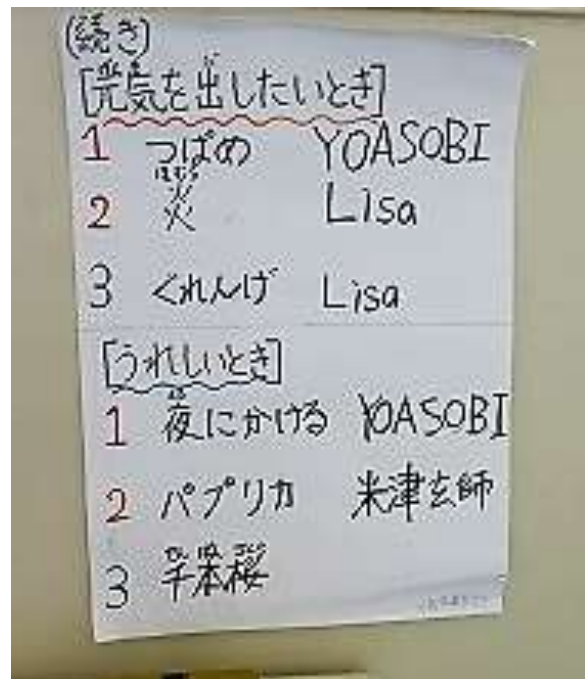 (続き)
[元気を出したいとき]
1 つばめ YOASOBI
2 炎 Lisa
3 ぐれんげ Lisa
[うれしいとき]
1 夜にかける YOASOBI
2 パプリカ 米津玄師
3 千本桜